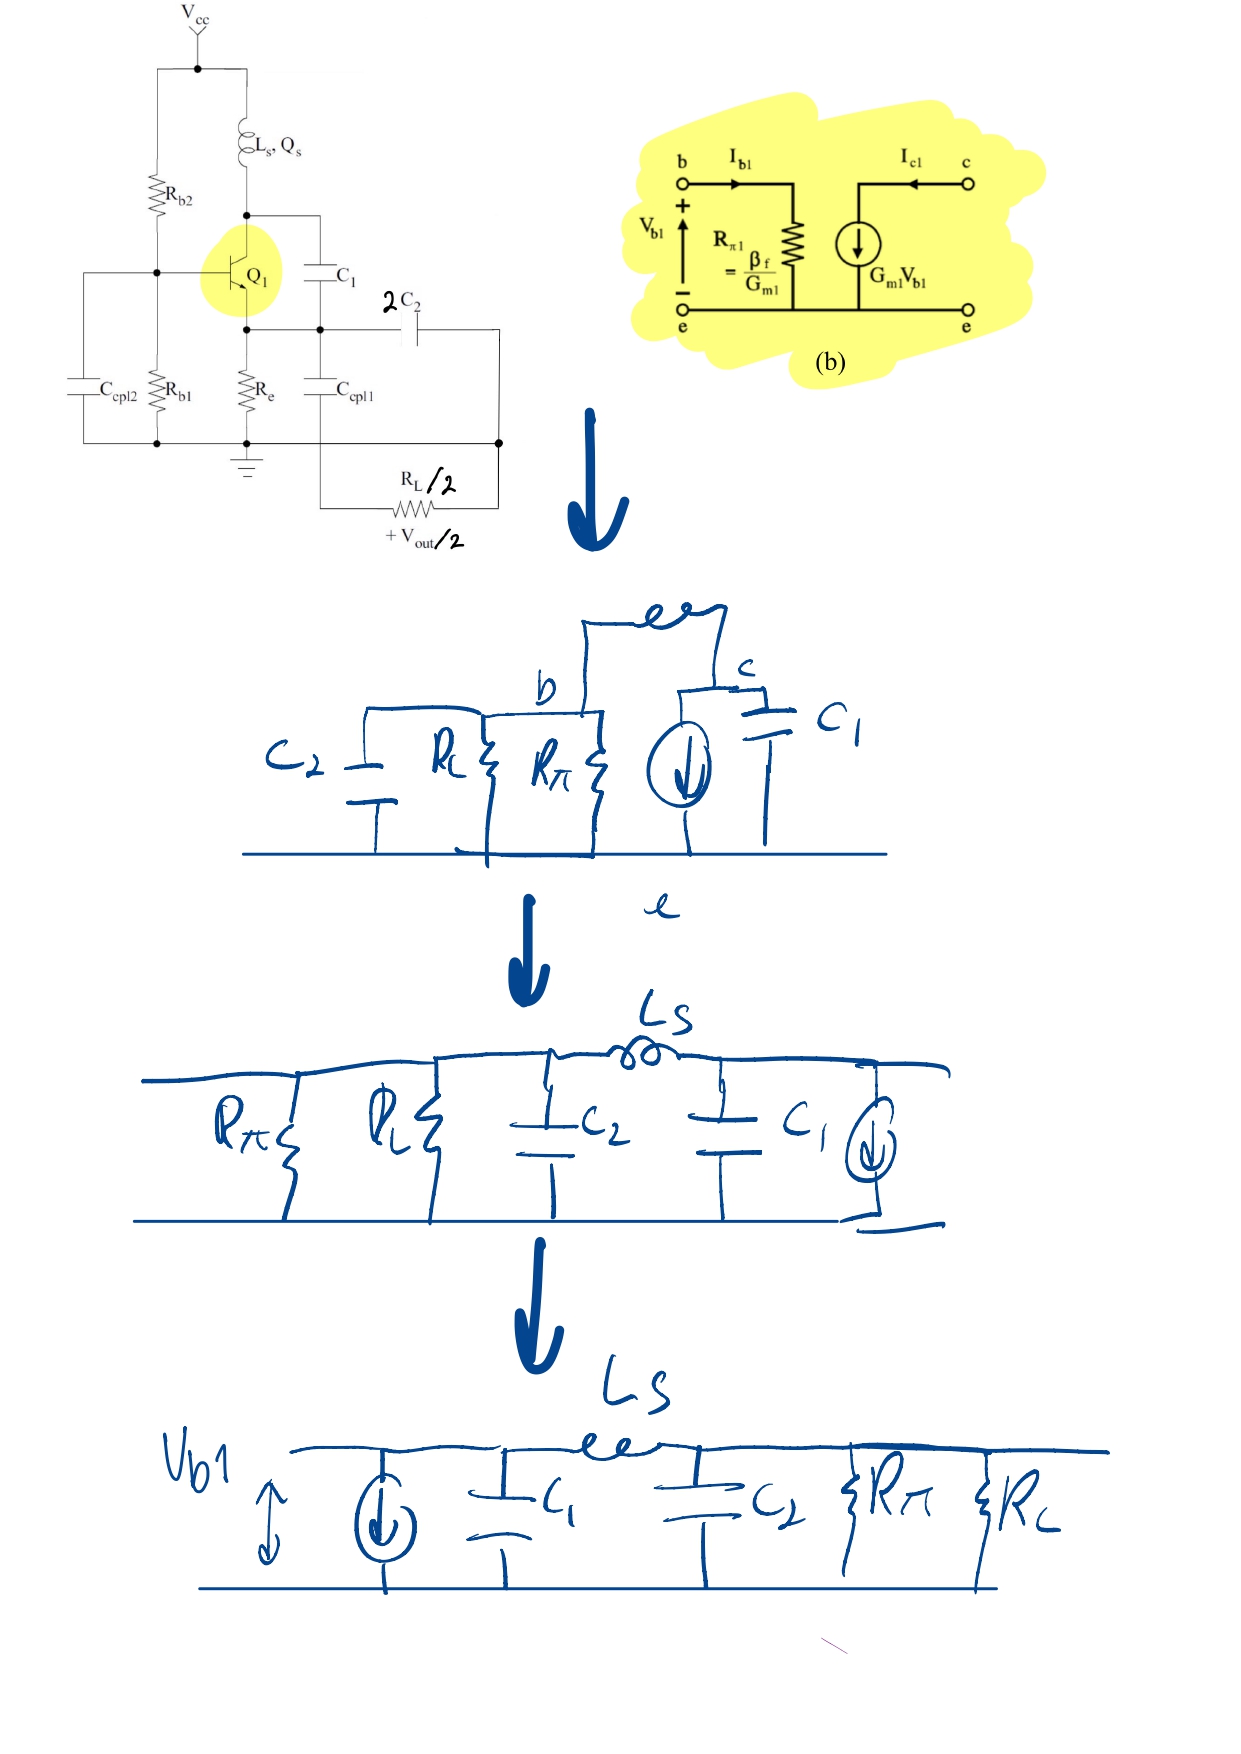 Vcc
Ls, Qs
Rb2
Q1
C1
2C2
Ccpl2
Rb1
Re
Ccpl1
RL/2
+ Vout/2
b
Ib1
Ic1
c
+
Vb1
Rπ1
= βf/Gm1
Gm1Vb1
−
e
e
(b)
b
c
C2
RL
Rπ
C1
e
Ls
Rπ
RL
C2
C1
Ls
Vb1
C1
C2
Rπ
RL